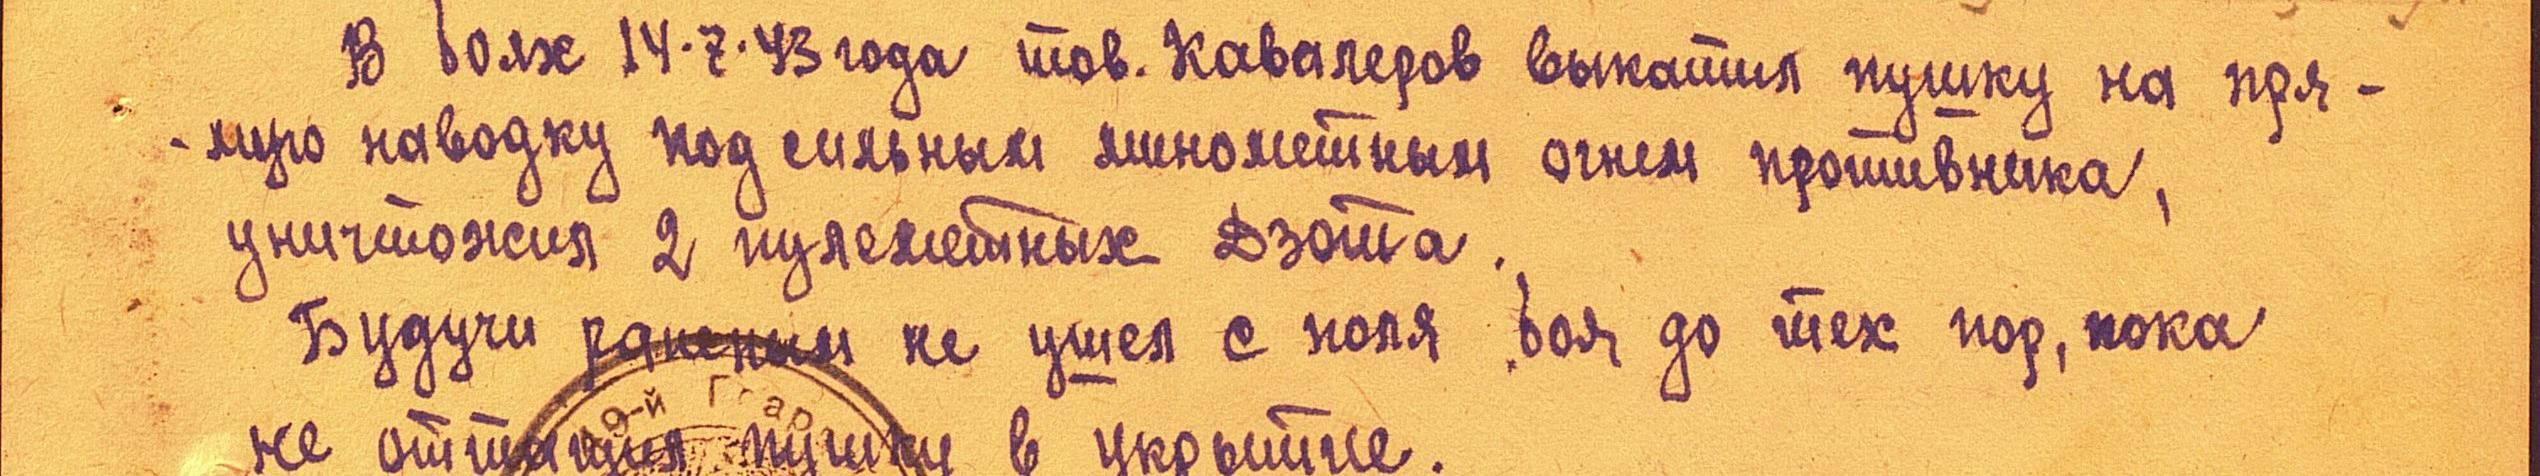 В боях 14.7.43 года тов. Кавалеров выкатил пушку на пря-
-мую наводку под сильным минометным огнем противника,
уничтожил 2 пулеметных Дзота.
Будучи раненым не ушел с поля боя до тех пор, пока
не оттащил пушку в укрытие.
9-й Гвар